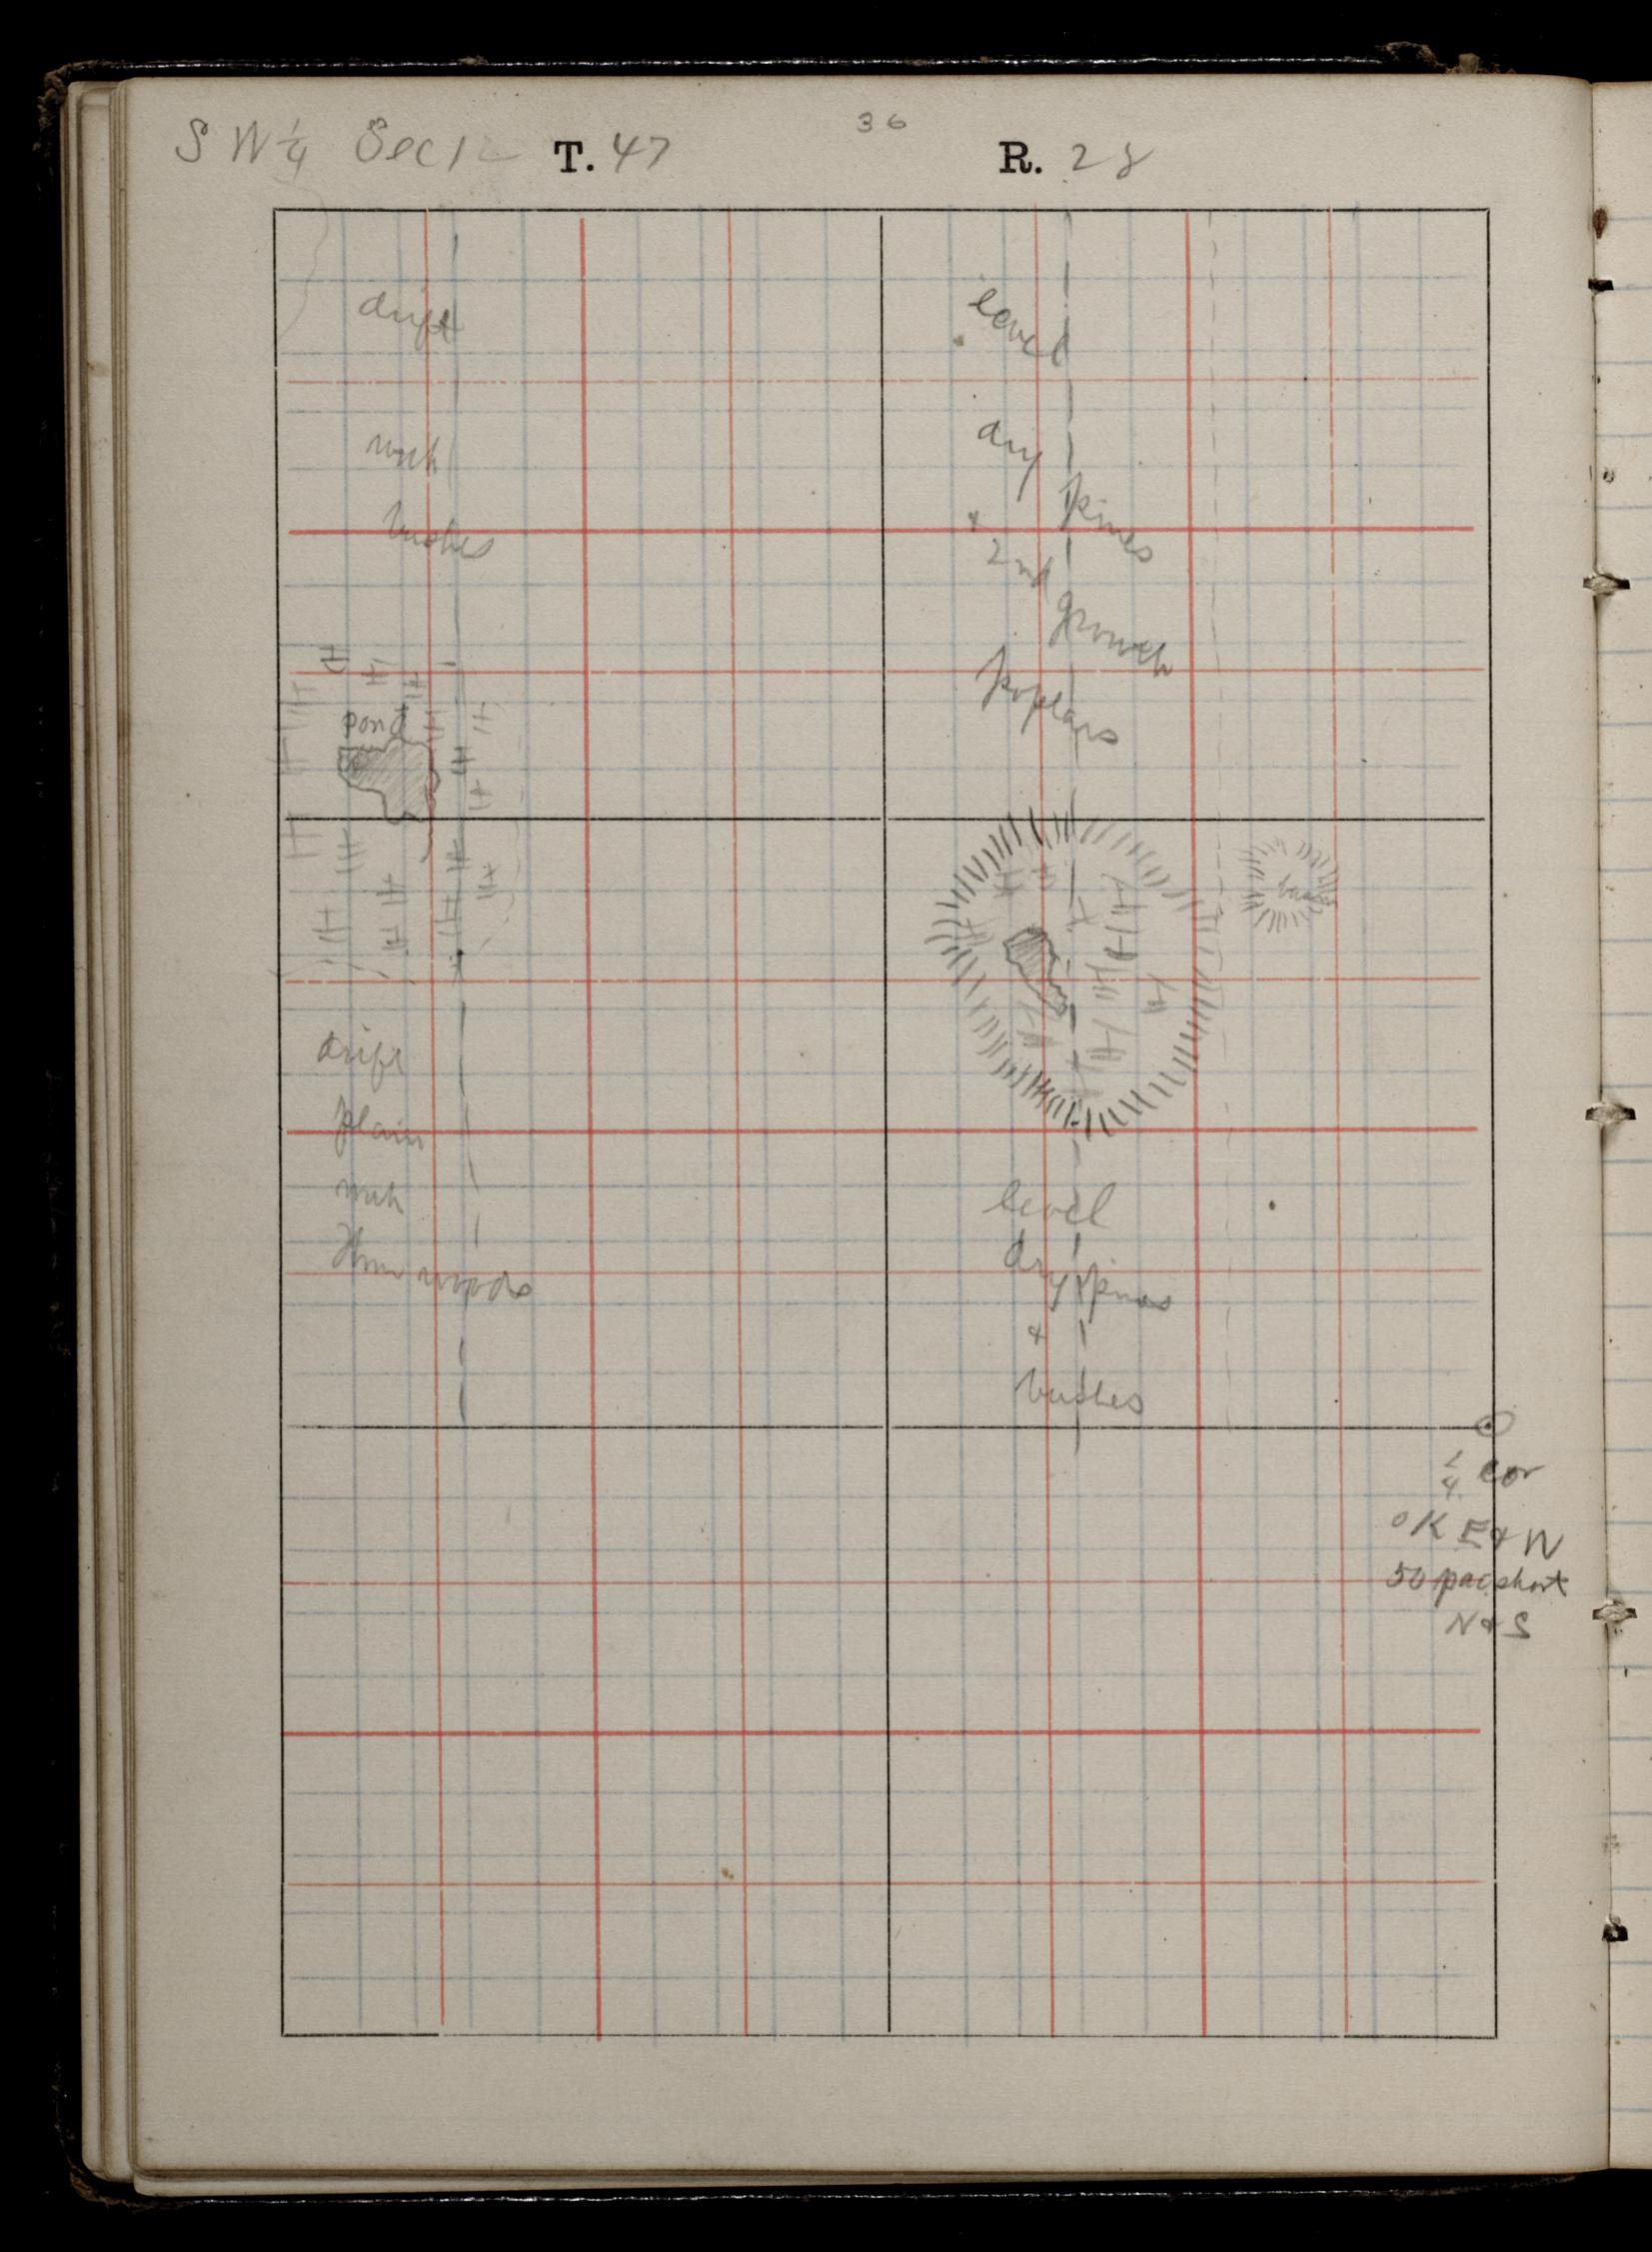 36
S W 1/4 Sec 12 T. 47 R. 28
drift
with
bushes
pond
drift
plain
with
woods
level
dry pines
& 2nd growth
poplars
level
dry pines
&
bushes
1/4 cor
OK E & W
50 pac short
N & S